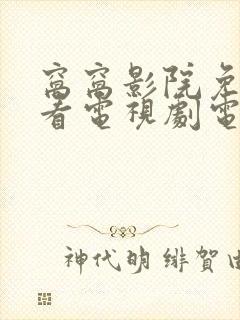 窩窩影院免
看電視劇電
神代明 緋賀由